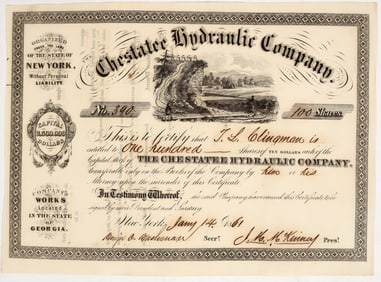 ORGANIZED
UNDER THE LAWS
OF THE STATE OF
NEW YORK,
Without Personal
LIABILITY.
CAPITAL
DOLLARS
COMPANY'S
WORKS
Located
IN THE STATE
OF
GEORGIA.
Chestatee Hydraulic Company.
No. 390
100 Shares.
This is to Certify that T. L. Clingman is
entitled to One hundred shares of TEN DOLLARS each of the
Capital Stock of THE CHESTATEE HYDRAULIC COMPANY,
Transferable only on the Books of the Company by him or his
Attorney upon the surrender of this Certificate.
In Testimony Whereof, the said Company have caused this Certificate to be
signed by their President and Secretary
New York Jany 14. 1861
Secy.
J. H. McKinney Pres!